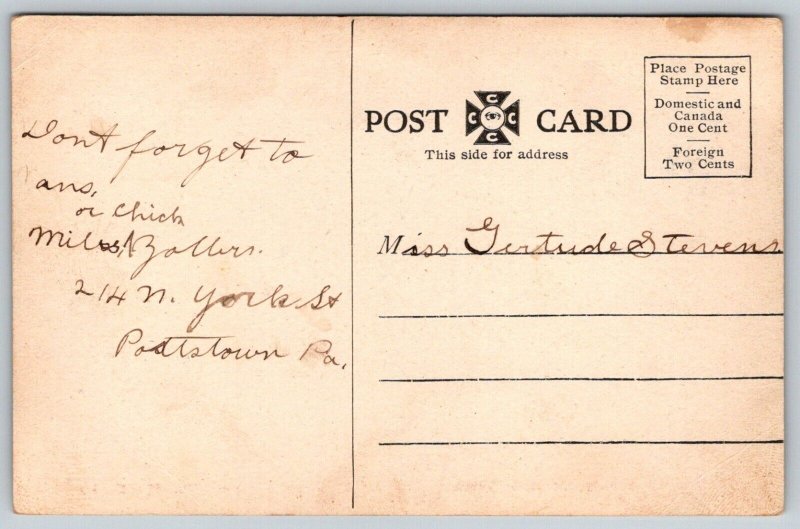 Dont forget to
ans,
or chick
Miles Zollers.
214 N. York St
Pottstown Pa.
POST CARD
C C C C
This side for address
Place Postage
Stamp Here
Domestic and
Canada
One Cent
Foreign
Two Cents
Miss Gertrude Stevens